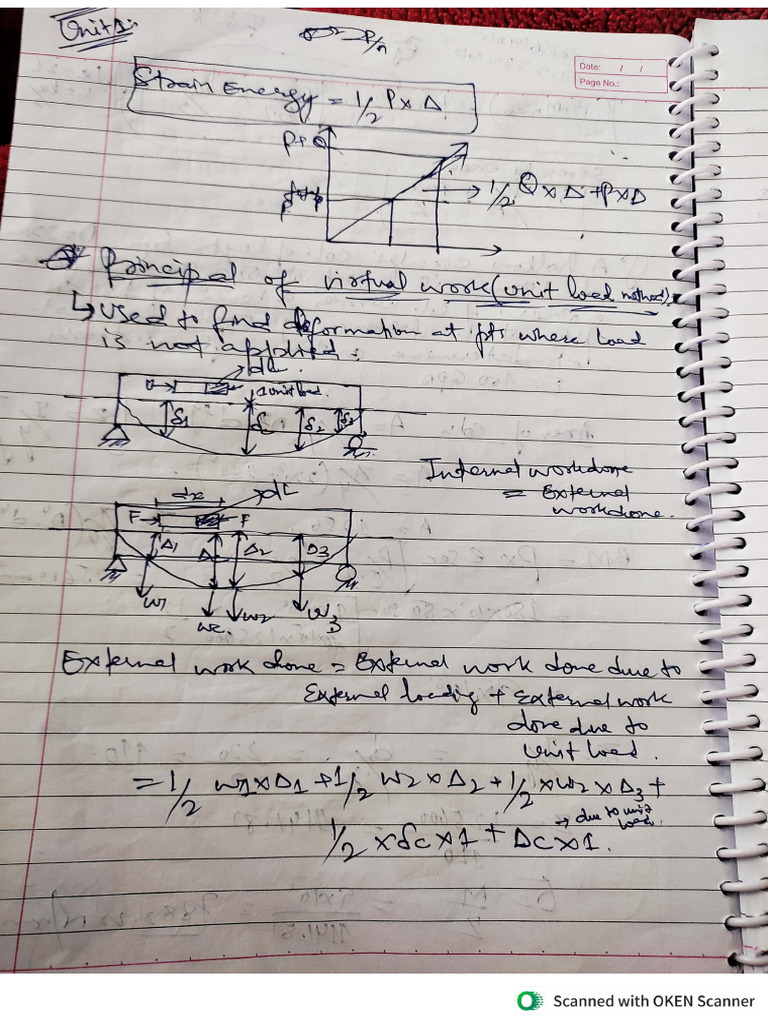 Unit 1:-
P/n
Date: / /
Page No.:
Strain Energy = 1/2 P x Δ
P+Q
P
→ 1/2 Q x Δ + P x Δ
Principal of virtual work (unit load method).
↳ Used to find deformation at pts where load
is not applied.
dL
1 unit load.
δ1 δc δ2 δ3
Internal workdone
= External
workdone.
dx dL
F F
Δ1 Δ Δ2 Δ3
W1 Wc W2 W3
External work done = External work done due to
External loading + External work
done due to
unit load.
= 1/2 W1 x Δ1 + 1/2 W2 x Δ2 + 1/2 x W2 x Δ3 +
→ due to unit
load.
1/2 x δc x 1 + Δc x 1.
Scanned with OKEN Scanner